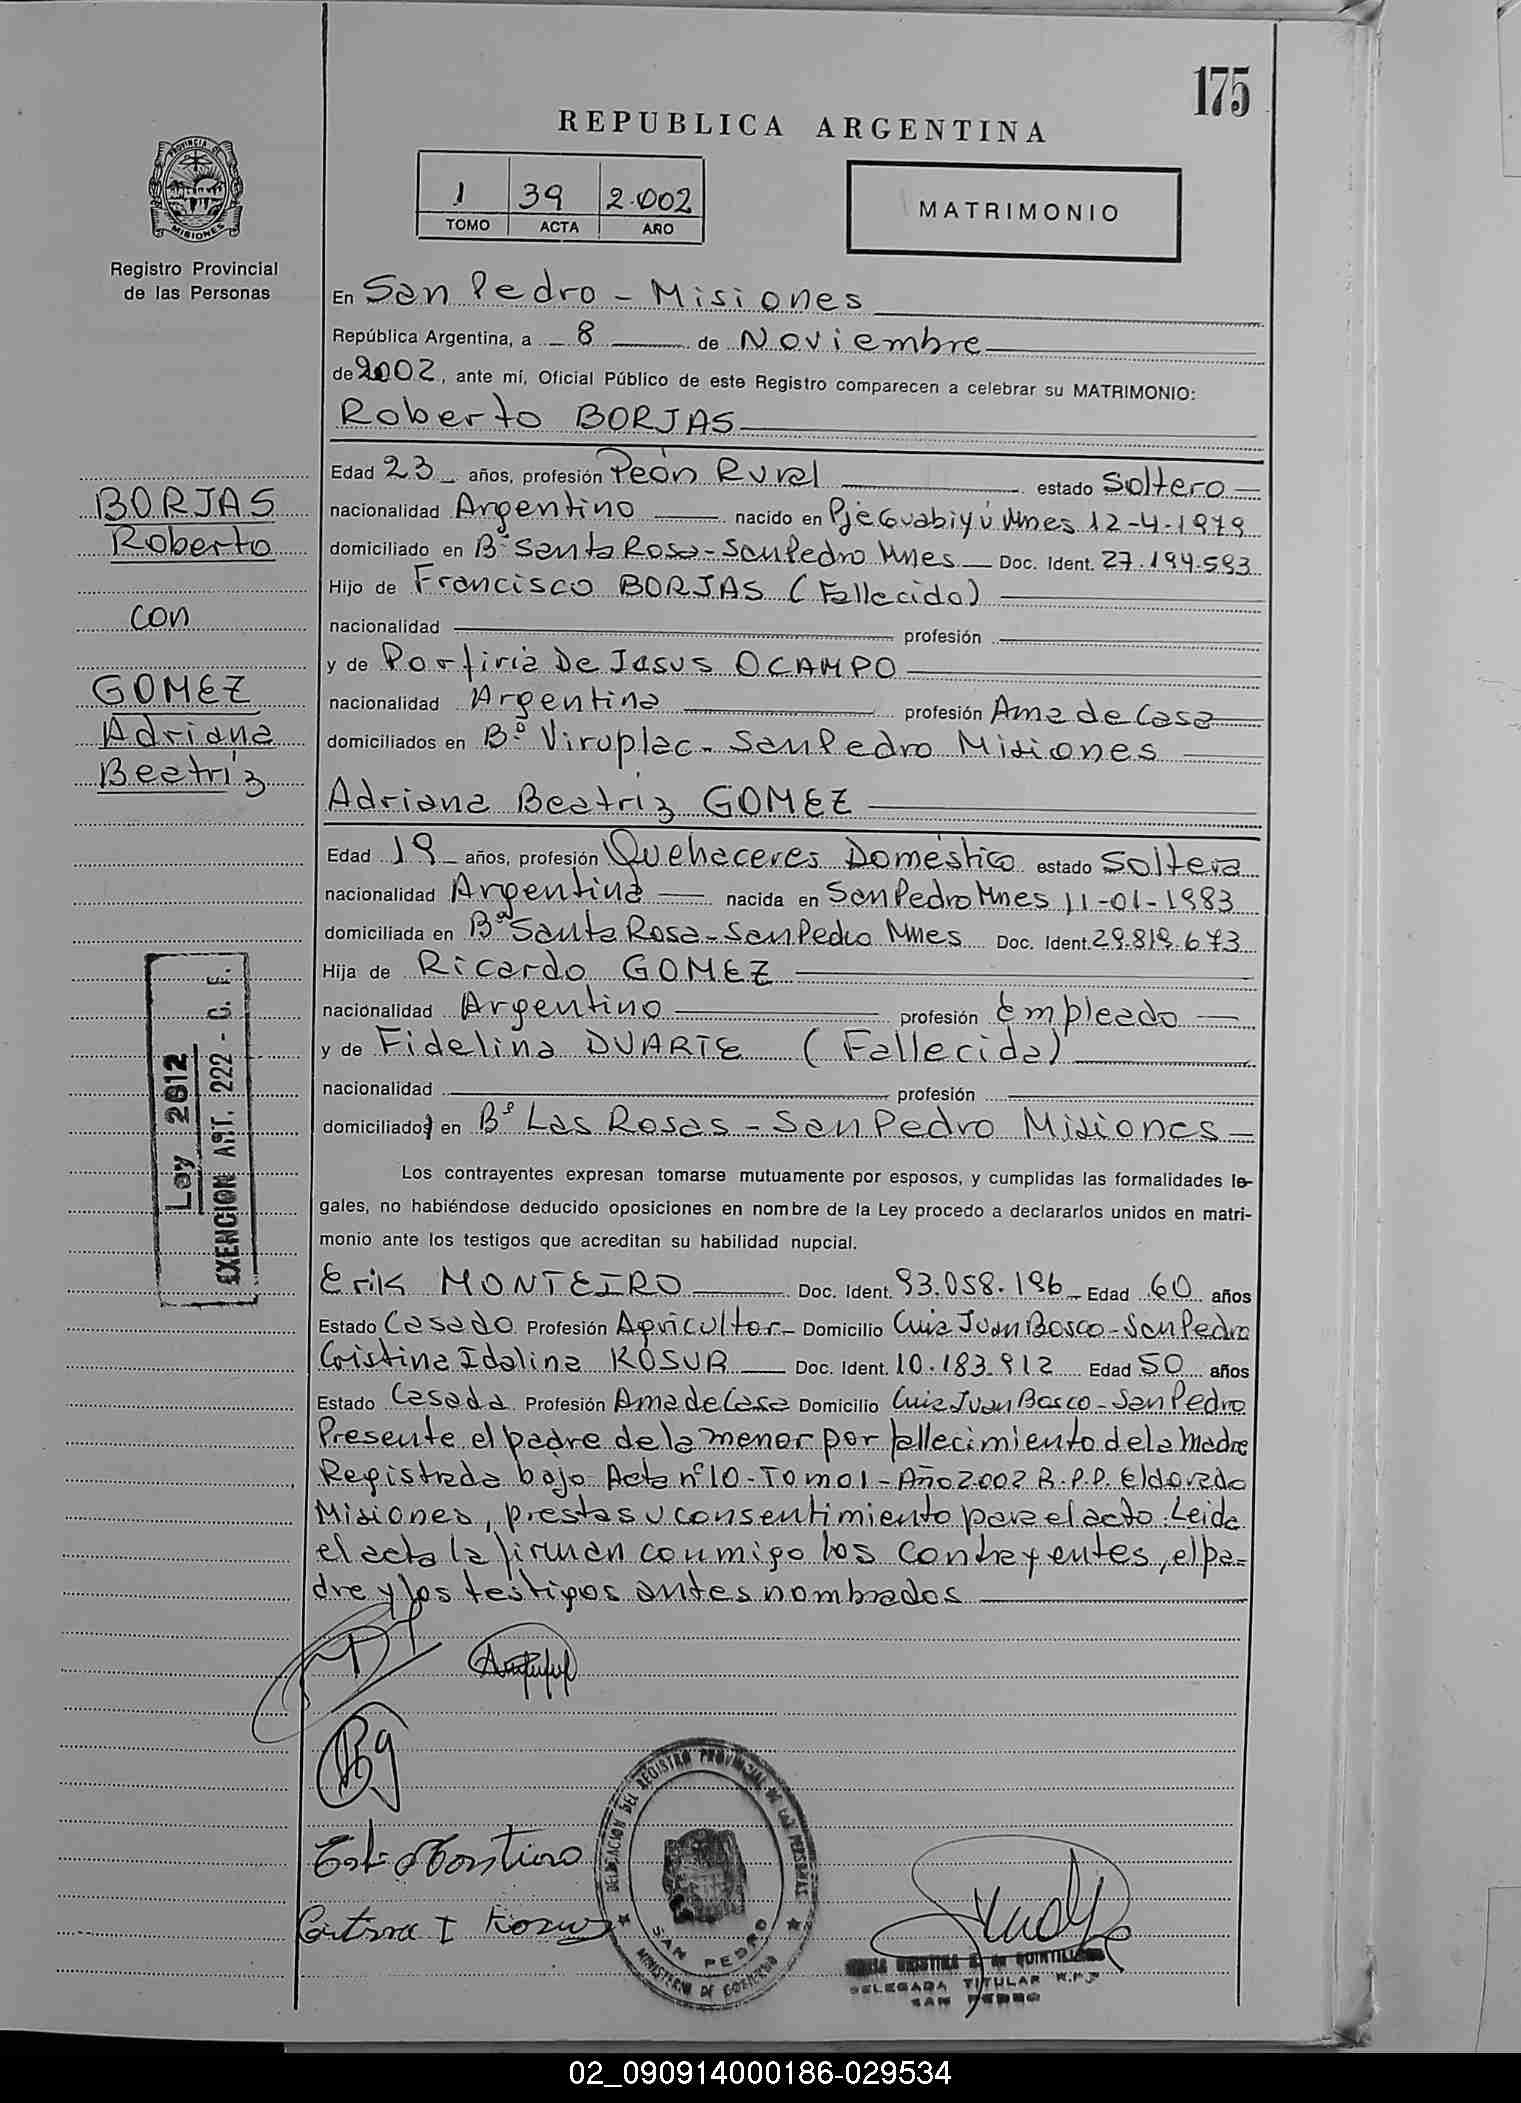 175
REPUBLICA ARGENTINA
PROVINCIA DE
MISIONES
Registro Provincial
de las Personas
1 39 2.002
TOMO ACTA AÑO
MATRIMONIO
En San Pedro - Misiones
República Argentina, a 8 de Noviembre
de 2002, ante mí, Oficial Público de este Registro comparecen a celebrar su MATRIMONIO:
Roberto BORJAS
Edad 23 años, profesión Peón Rural estado Soltero
nacionalidad Argentino nacido en Pje Guabiyú Mnes 12-4-1979
domiciliado en Bº Santa Rosa - San Pedro Mnes Doc. Ident. 27.194.593
Hijo de Francisco BORJAS (Fallecido)
nacionalidad profesión
y de Porfiria De Jesus OCAMPO
nacionalidad Argentina profesión Ama de Casa
domiciliados en Bº Viruplac - San Pedro Misiones
BORJAS
Roberto
con
GOMEZ
Adriana
Beatríz
Adriana Beatríz GOMEZ
Edad 19 años, profesión Quehaceres Doméstico estado Soltera
nacionalidad Argentina nacida en San Pedro Mnes 11-01-1983
domiciliada en Bº Santa Rosa - San Pedro Mnes Doc. Ident. 29.819.673
Hija de Ricardo GOMEZ
nacionalidad Argentino profesión Empleado
y de Fidelina DUARTE (Fallecida)
nacionalidad profesión
domiciliado en Bº Las Rosas - San Pedro Misiones
Ley 2812
EXENCION ART. 222 - C. F.
Los contrayentes expresan tomarse mutuamente por esposos, y cumplidas las formalidades le-
gales, no habiéndose deducido oposiciones en nombre de la Ley procedo a declararlos unidos en matri-
monio ante los testigos que acreditan su habilidad nupcial.
Erik MONTEIRO Doc. Ident. 93.058.196 Edad 60 años
Estado Casado Profesión Agricultor Domicilio Cnia Juan Bosco - San Pedro
Cristina Idalina KOSUR Doc. Ident. 10.183.912 Edad 50 años
Estado Casada Profesión Ama de Casa Domicilio Cnia Juan Bosco - San Pedro
Presente el padre de la menor por fallecimiento de la Madre
Registrada bajo Acta nº 10 - Tomo 1 - Año 2002 R.P.P. Eldorado
Misiones, presta su consentimiento para el acto. Leida
el acta la firman conmigo los contrayentes, el pa=
dre y los testigos antes nombrados
DELEGACION DEL REGISTRO PROVINCIAL DE LAS PERSONAS
SAN PEDRO
MINISTERIO DE GOBIERNO
DELEGADA TITULAR R.P.P.
SAN PEDRO
02_090914000186-029534